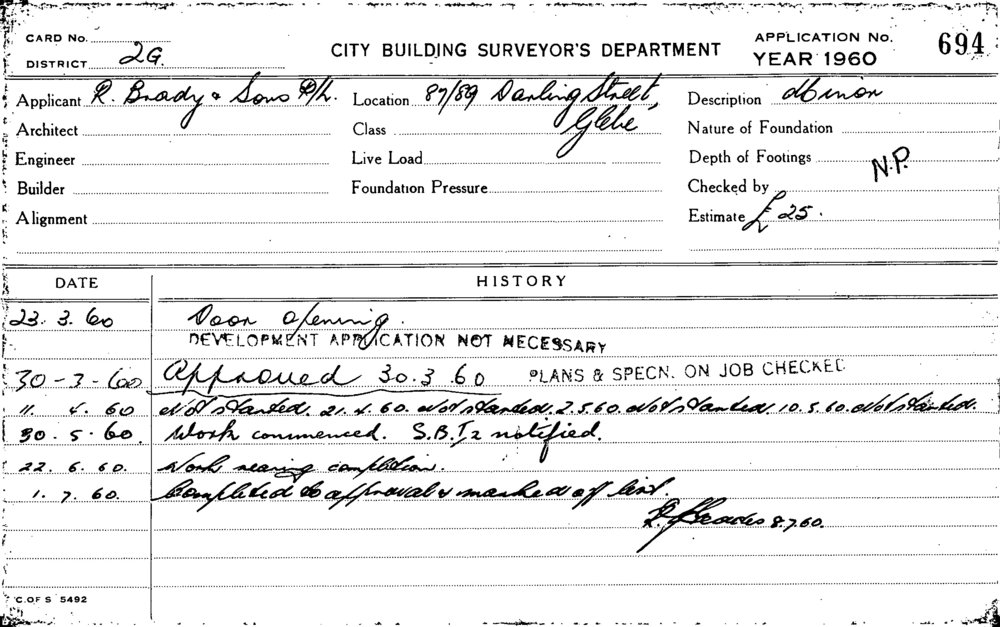 CARD No.
DISTRICT 2G.
CITY BUILDING SURVEYOR'S DEPARTMENT
APPLICATION No. 694
YEAR 1960
Applicant R. Brady & Sons P/L. Location 87/89 Darling Street, Glebe Description Minor
Architect Class Nature of Foundation
Engineer Live Load Depth of Footings
Builder Foundation Pressure Checked by N.P.
Alignment Estimate £25.
DATE HISTORY
23. 3. 60 Door opening.
DEVELOPMENT APPLICATION NOT NECESSARY
30-3-60 Approved 30.3.60 PLANS & SPECN. ON JOB CHECKED
11. 4. 60 Not started, 21.4.60. Not started, 2.5.60. Not started, 10.5.60. Not started.
30. 5. 60. Work commenced. S.B.I2 notified.
22. 6. 60. Work nearing completion.
1. 7. 60. Completed to approval & marked off list.
8.7.60.
C. OF S 5492